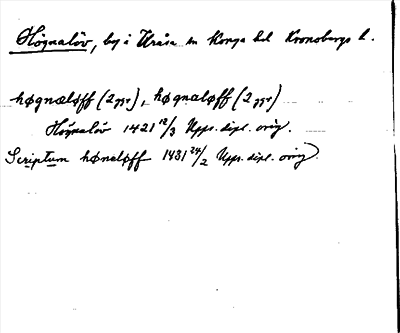 Högnalöv, by i Uråsa sn Konga hd Kronobergs l.
høgnæløff (2 ggr), høgnaløff (2 ggr)
Högnalöv 1421 12/3 Upps. dipl. orig.
Scriptum hønæløff 1431 24/2 Upps. dipl. orig.